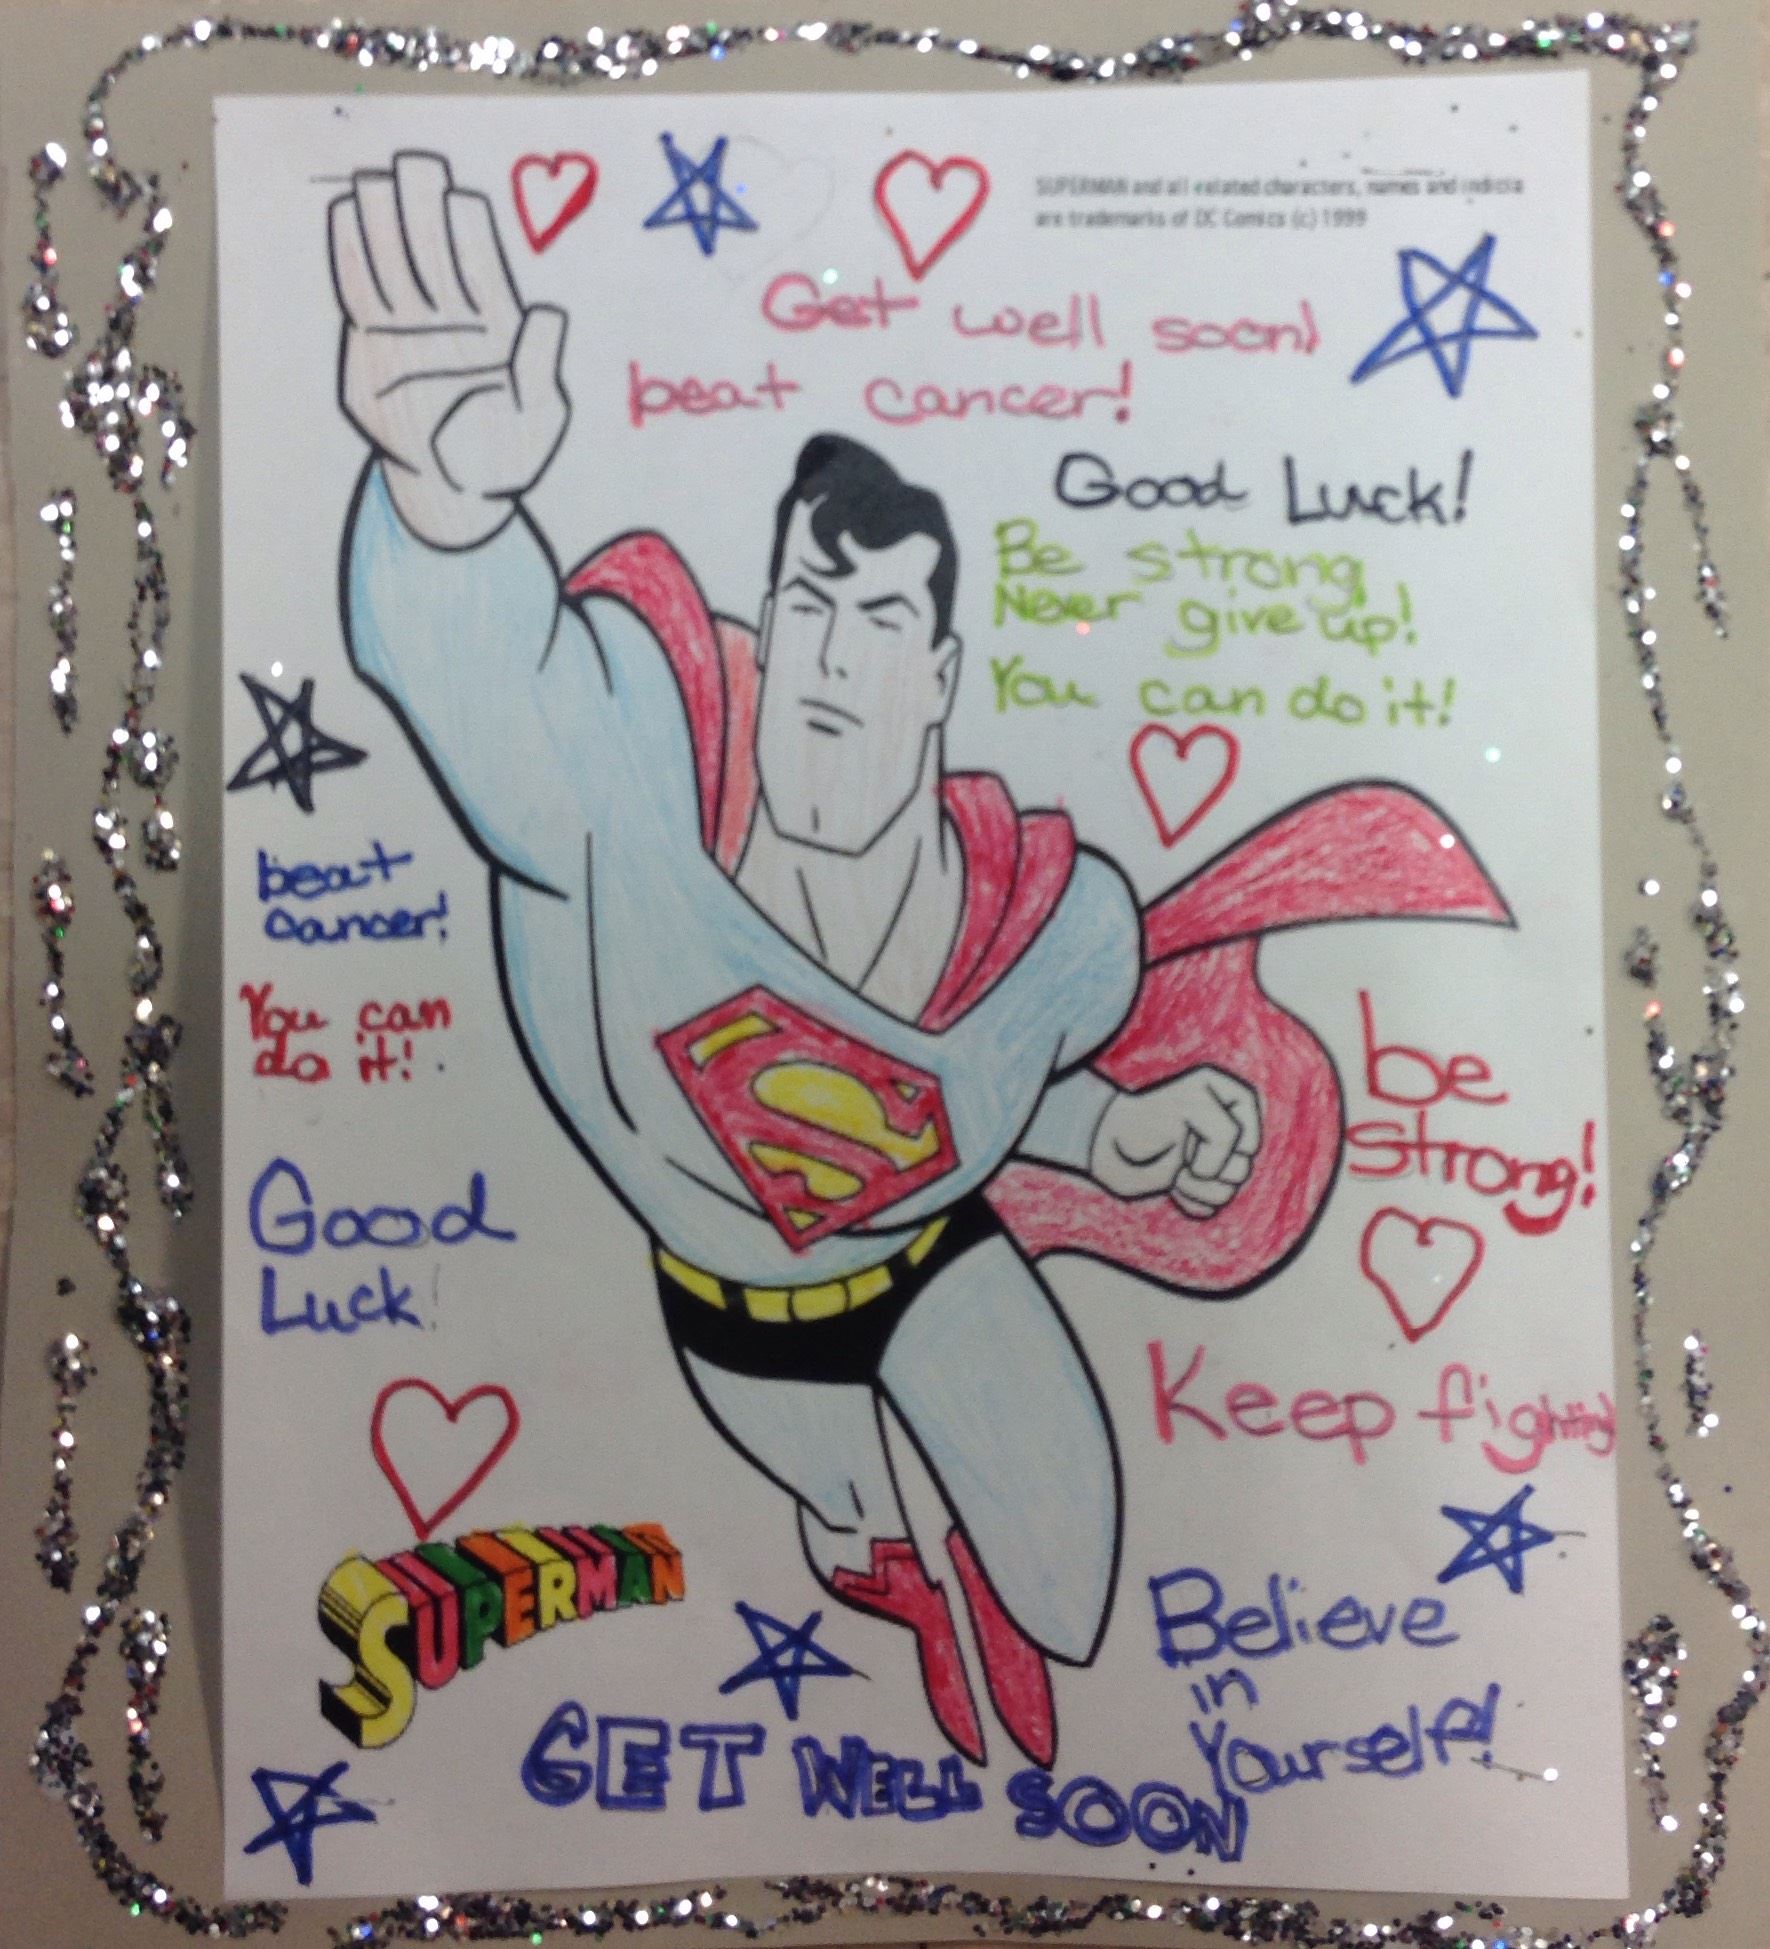 SUPERMAN and all related characters, names and indicia
are trademarks of DC Comics (c) 1999
Get well soon!
beat cancer!
Good Luck!
Be strong
Never give up!
You can do it!
beat
cancer!
You can
do it!
be
strong!
Good
Luck!
Keep fighting
SUPERMAN
Believe
in
Yourself!
GET WELL SOON